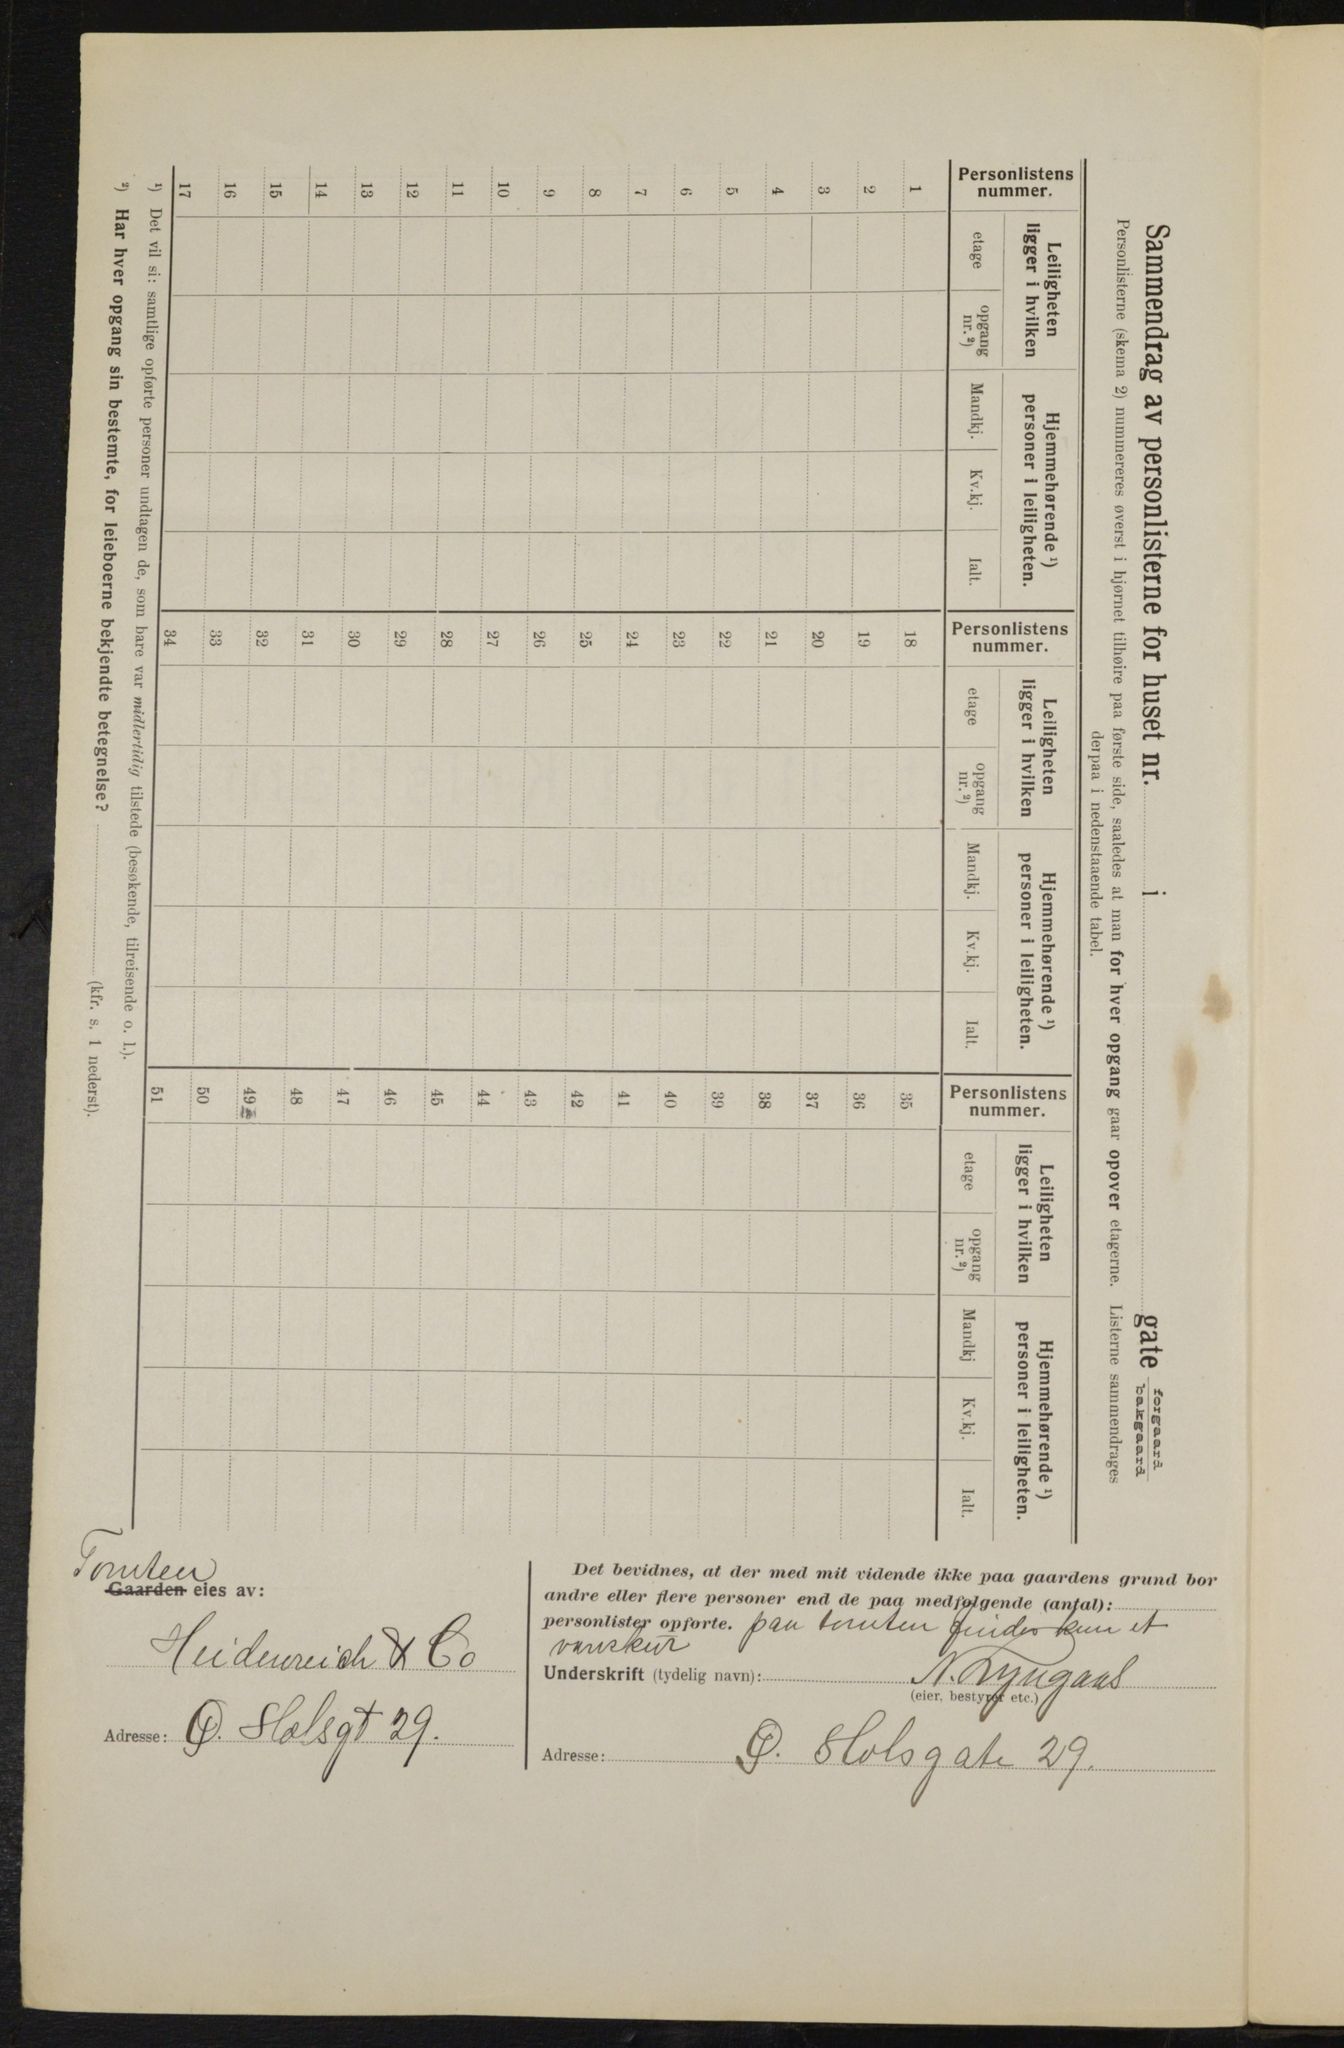 Sammendrag av personlisterne for huset nr. i gate forgaard bakgaard
Personlisterne (skema 2) nummereres øverst i hjørnet tilhøire paa første side, saaledes at man for hver opgang gaar opover etagerne. Listerne sammendrages
derpaa i nedenstaaende tabel.
Personlistens nummer.
Leiligheten ligger i hvilken
etage
opgang nr. ²)
Hjemmehørende ¹) personer i leiligheten.
Mandkj.
Kv.kj.
Ialt.
Personlistens nummer.
Leiligheten ligger i hvilken
etage
opgang nr. ²)
Hjemmehørende ¹) personer i leiligheten.
Mandkj.
Kv.kj.
Ialt.
Personlistens nummer.
Leiligheten ligger i hvilken
etage
opgang nr. ²)
Hjemmehørende ¹) personer i leiligheten.
Mandkj
Kv.kj.
Ialt.
1 18 35
2 19 36
3 20 37
4 21 38
5 22 39
6 23 40
7 24 41
8 25 42
9 26 43
10 27 44
11 28 45
12 29 46
13 30 47
14 31 48
15 32 49
16 33 50
17 34 51
¹) Det vil si: samtlige opførte personer undtagen de, som bare var midlertidig tilstede (besøkende, tilreisende o. l.).
²) Har hver opgang sin bestemte, for leieboerne bekjendte betegnelse? (kfr. s. 1 nederst).
Tomten
Gaarden eies av:
Heidenreich & Co
Adresse: O. Holsgt 29.
Det bevidnes, at der med mit vidende ikke paa gaardens grund bor
andre eller flere personer end de paa medfølgende (antal):
personlister opførte. paa tomten findes kun et
Underskrift (tydelig navn): N. Lyngaas
(eier, bestyrer etc.)
Adresse: O. Holsgate 29.